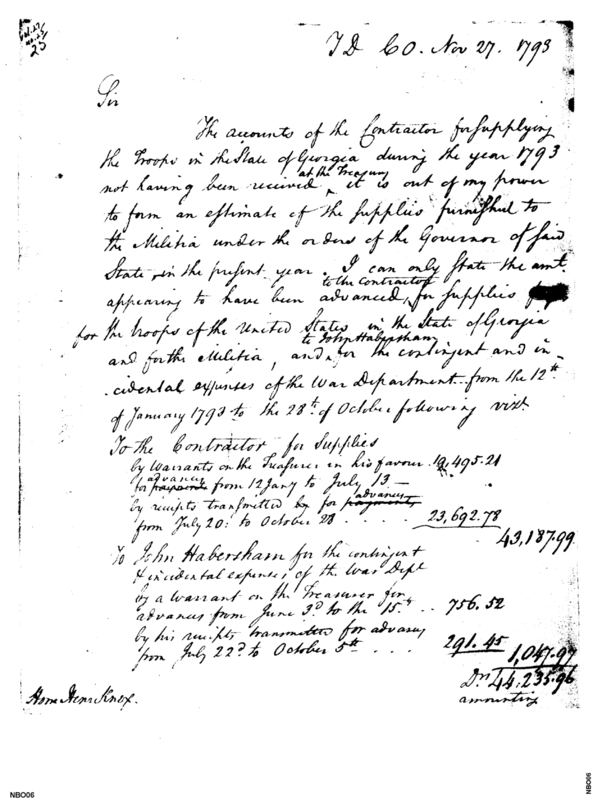 25
T D CO. Nov 27. 1793
Sir
The accounts of the Contractor for supplying
the Troops in the State of Georgia during the year 1793
at the Treasury
not having been received, it is out of my power
to form an estimate of the supplies furnished to
the Militia under the orders of the Governor of said
State, in the present year. I can only state the amt.
to the Contractor
appearing to have been advanced, for supplies
for the troops of the United States in the State of Georgia
to John Habersham
and for the Militia, and, for the contingent and in-
cidental expenses of the War Department from the 12th
of January 1793 to the 28th of October following vizt.
To the Contractor for Supplies
by Warrants on the Treasurer in his favour 19,495.21
advances
for payments from 12 Jany to July 13 —
advances
by receipts transmitted by for payments
from July 20: to October 28 . . . . 23,692.78
43,187.99
To John Habersham for the contingent
& incidental expenses of the War Dept
by a Warrant on the Treasurer for
advances from June 3d to the 15th . . 756.52
by his receipts transmitted for advances
from July 22d to October 5th . . . . 291.45
1,047.97
Drs 44,235.96
amounting
Honr Henr Knox.
NBO06
NBO06